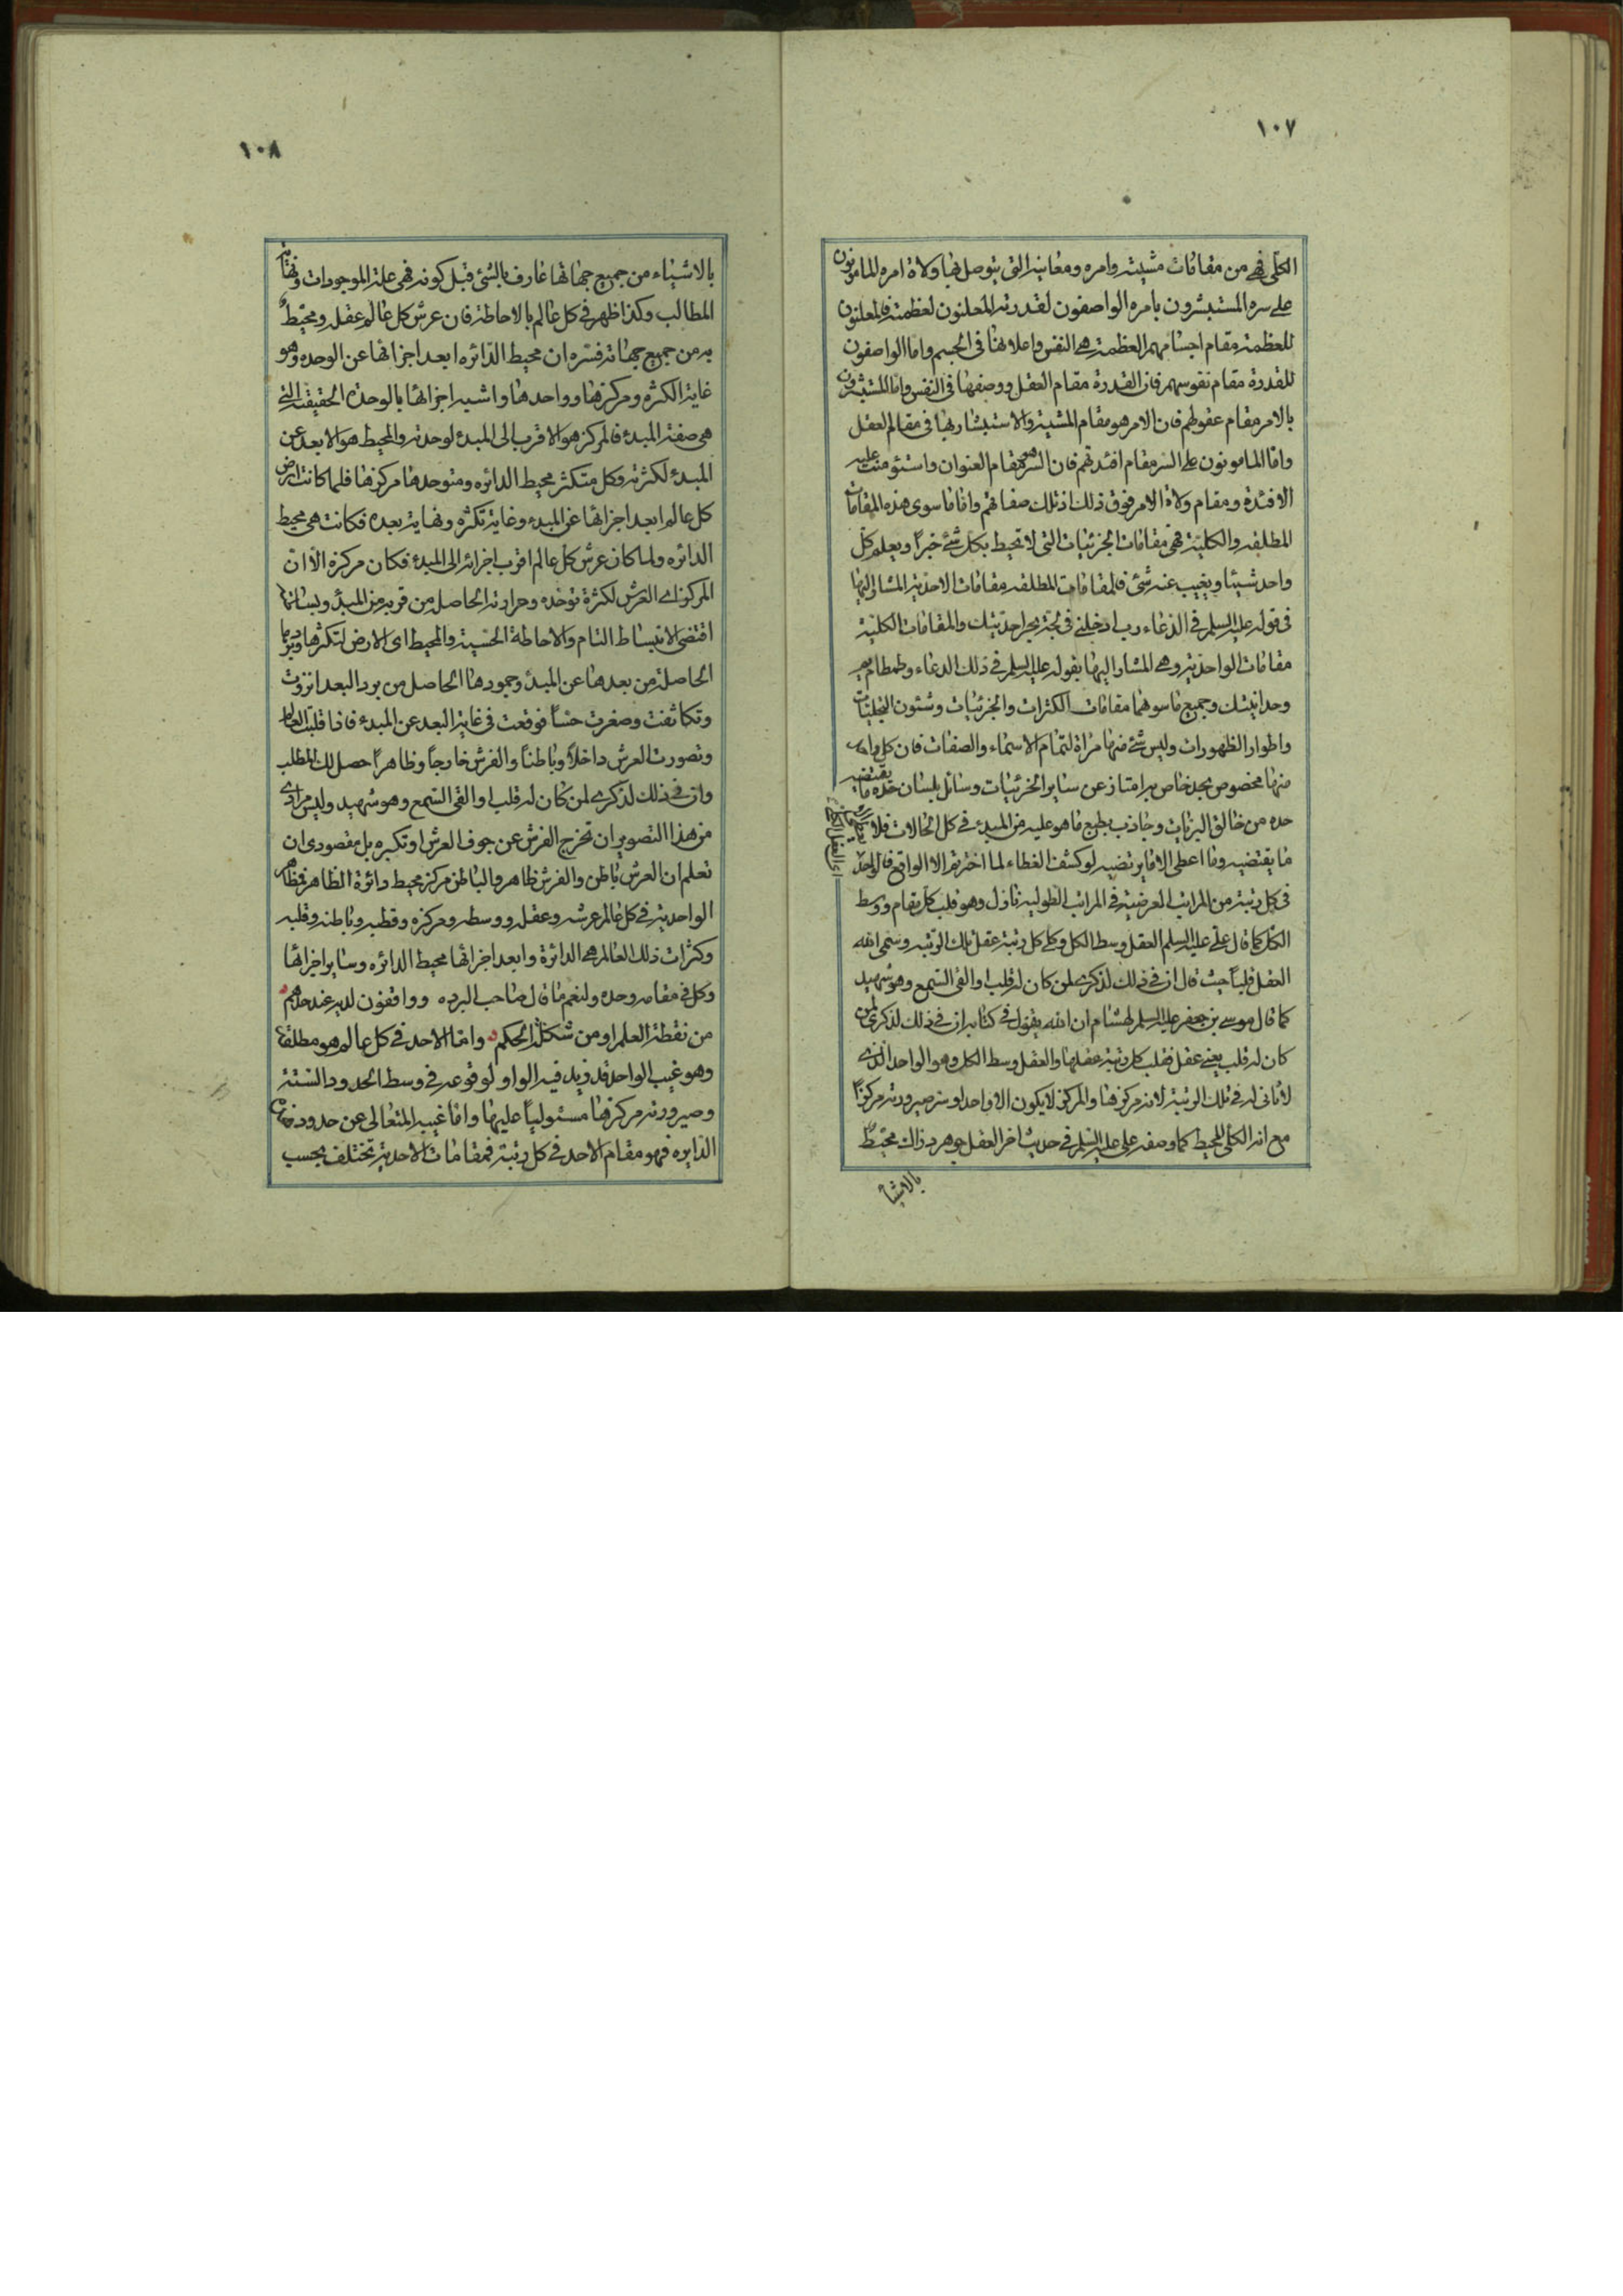 ١٠٧
الكلّي فهي من مقامات مشيته وامره ومعانيه التي يتوصل بها ولاة امره المامونون
على سره المستبشرون بامره الواصفون لقدرته المعلنون لعظمته فالمعلنون
للعظمة مقام اجسامهم العظمة هي النفس واعلانها في الجسم واما الواصفون
للقدرة مقام نفوسهم فان القدرة مقام العقل ووصفها في النفس واما المستبشرون
بالامر مقام عقولهم فان الامر هو مقام المشية والاستبشار بها في مقام العقل
وامّا المامونون على السر مقام افئدتهم فان السر هو مقام العنوان واستؤمنت عليه
الافئدة ومقام ولاة الامر فوق ذلك اذ تلك صفاتهم واما ما سوى هذه المقامات
المطلقه والكليّة فهي مقامات الجزئيات التي لا تحيط بكل شئ خبراً ويعلم كل
واحد شيئا ويغيب عنه شئ فالمقامات المطلقه مقامات الاحدية المشار اليها
في قوله عليه السلم في الدعاء رب ادخلني في لجة بحر احديتك والمقامات الكليّة
مقامات الواحدية وهي المشار اليها بقوله عليه السلم في ذلك الدعاء وطمطام يم
وحدانيتك وجميع ما سوهما مقامات الكثرات والجزئيات وشئون التجليات
واطوار الظهورات وليس شئ منها مراة لتمام الاسماء والصفات فان كل واحد
منها مخصوص بحد خاص به امتاز عن ساير الجزئيات وسائل بلسان حده ما يقتضيه
حده من خالق البريات وجاذب بطبع ما هو عليه من المبدء في كل الحالات فلا
ما يقتضيه وما اعطى الا ما يرتضيه لو كشف الغطاء لما اخترتم الا الواقع فالواحد
اي العقل الكلي
في كل رتبة من المراتب العرضية في المراتب الطولية نازل وهو قلب كل مقام ووسط
الكل كما قال علي عليه السلم العقل وسط الكل وكلي كل رتبة عقل تلك الرتبه وسمى الله
العقل قلباً حيث قال ان في ذلك لذكرى لمن كان له قلب او القى السمع وهو شهيد
كما قال موسى بن جعفر عليه السلم لهشام ان الله يقول في كتابه ان في ذلك لذكرى لمن
كان له قلب يعني عقل فقلب كل رتبة عقلها والعقل وسط الكل وهو الواحد الذي
لا ثاني له في تلك الرتبة لانه مركزها والمركز لا يكون الا واحدا وسر صيرورته مركزاً
مع انه الكلّي المحيط كما وصفه علي عليه السلم في حديث اخر العقل جوهر دراك محيط
بالاشيا
١٠٨
بالاشياء من جميع جهاتها عارف بالشئ قبل كونه فهي علة الموجودات ونهاية
المطالب وكذا ظهر في كل عالم بالاحاطة فان عرش كل عالم عقله ومحيط
به من جميع جهاته فسره ان محيط الدائره ابعد اجزائها عن الوحده وهو
غاية الكثره ومركزها وواحدها واشبه اجزائها بالوحدة الحقيقة التي
هي صفة المبدء فالمركز هو الاقرب الى المبدء لوحدته والمحيط هو الابعد عن
المبدء لكثرته وكل متكثر محيط الدائره ومتوحدها مركزها فلما كانت ارض
كل عالم ابعد اجزائها عن المبدء وغاية تكثره ونهاية بعده فكانت هي محيط
الدائره ولما كان عرش كل عالم اقرب اجزائه الى المبدء فكان مركزه الّا ان
المركز اي العرش لكثرة توحده وحرارته الحاصل من قربه من المبدء وبساطتها
اقتضى الانبساط التام والاحاطة الحسية والمحيط اى الارض لتكثرها وبرودتها
الحاصلة من بعدها عن المبدء وجمودها الحاصل من برد البعد انزوت
وتكاثفت وصغرت حسّاً فوقعت في غاية البعد عن المبدء فاذا قلبت العالم
وتصورت العرش داخلاً وباطناً والفرش خارجاً وظاهراً حصل لك المطلب
وان في ذلك لذكرى لمن كان له قلب او القى السمع وهو شهيد وليس مرادي
من هذا التصوير ان تخرج الفرش عن جوف العرش او تكبره بل مقصودى ان
تعلم ان العرش باطن والفرش ظاهر والباطن مركز محيط دائرة الظاهر فمظاهر
الواحدية في كل عالم عرشه وعقله ووسطه ومركزه وقطبه وباطنه وقلبه
وكثرات ذلك العالم هي الدائرة وابعد اجزائها محيط الدائره وساير اجزائها
وكل في مقامه وحده ولنعم ما قال صاحب البرده وواقفون لديه عند حدهم
من نقطة العلم او من شكلة الحكم واما الاحد في كل عالم هو مطلقه
وهو غيب الواحد قد زيد فيه الواو لوقوعه في وسط الحدود الستة
وصيرورته مركزها مستولياً عليها واما غيبه المتعالى عن حدود نهاية
الدايره فهو مقام الاحد في كل رتبة فمقامات الاحدية تختلف بحسب